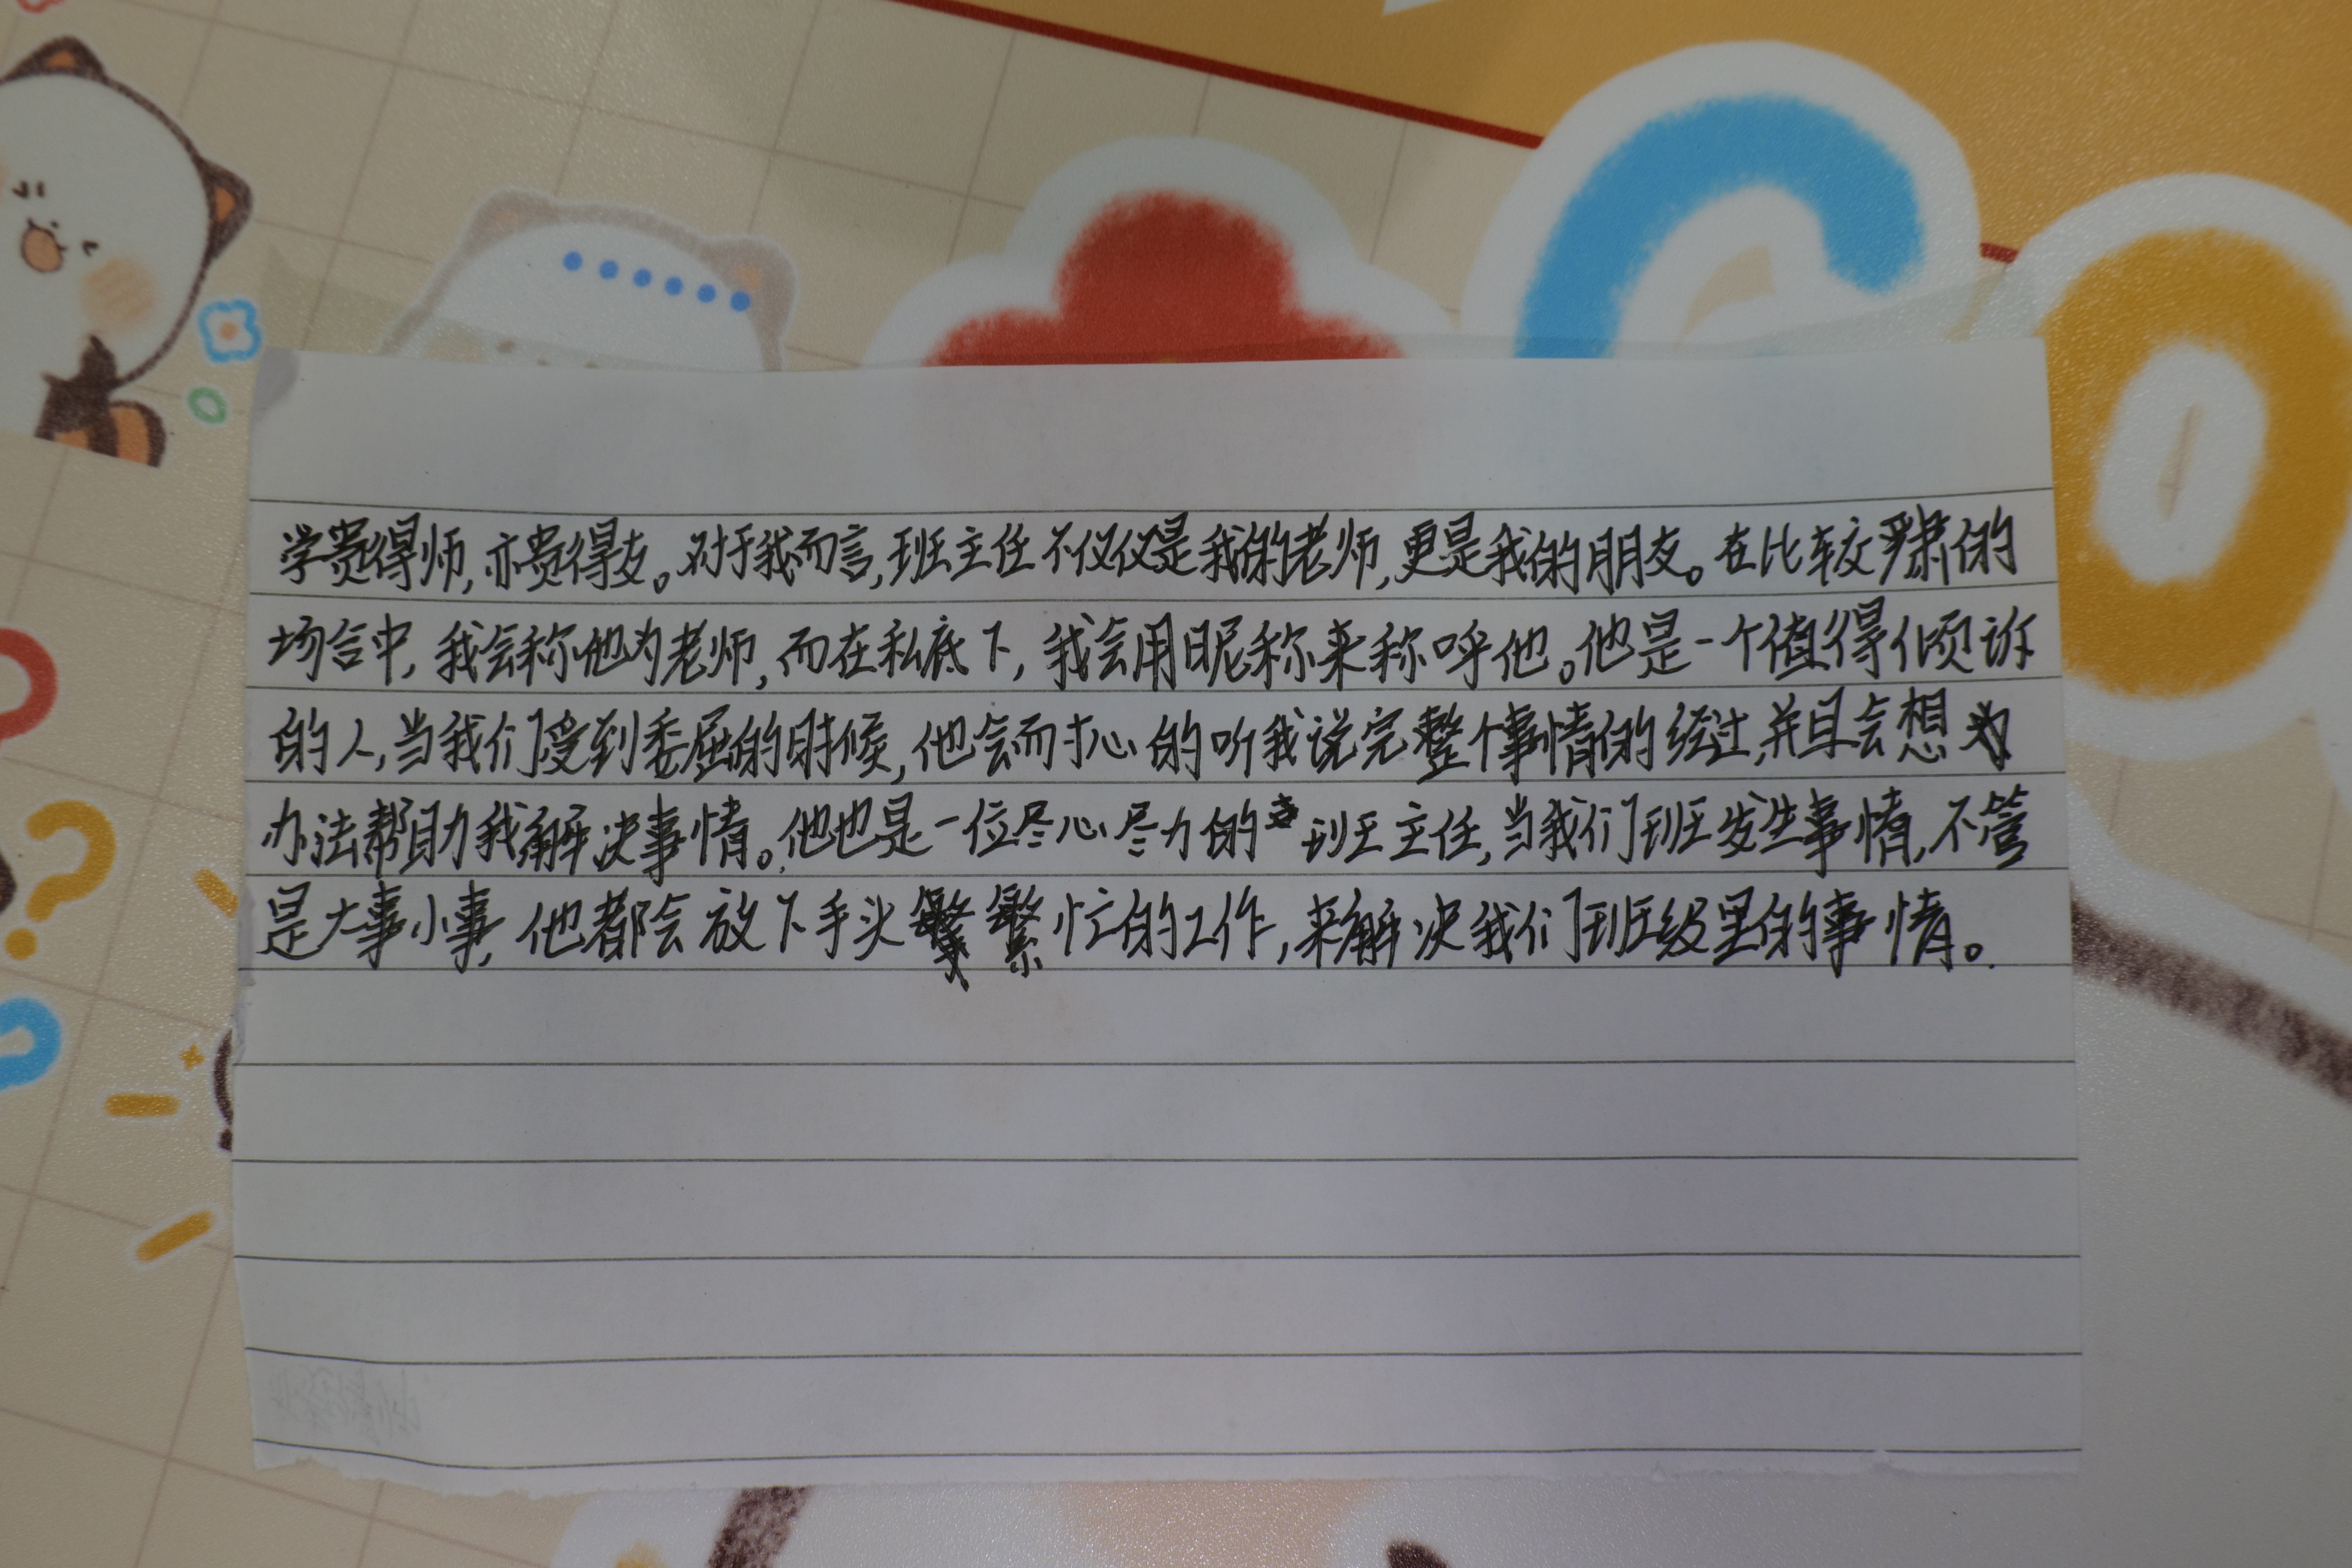 学贵得师,亦贵得友。对于我而言,班主任不仅仅是我的老师,更是我的朋友。在比较严肃的
场合中,我会称他为老师,而在私底下,我会用昵称来称呼他。他是一个值得倾诉
的人,当我们受到委屈的时候,他会耐心的听我说完整个事情的经过,并且会想
办法帮助我解决事情。他也是一位尽心尽力的班主任,当我们班发生事情,不管
是大事小事,他都会放下手头繁忙的工作,来解决我们班级里的事情。